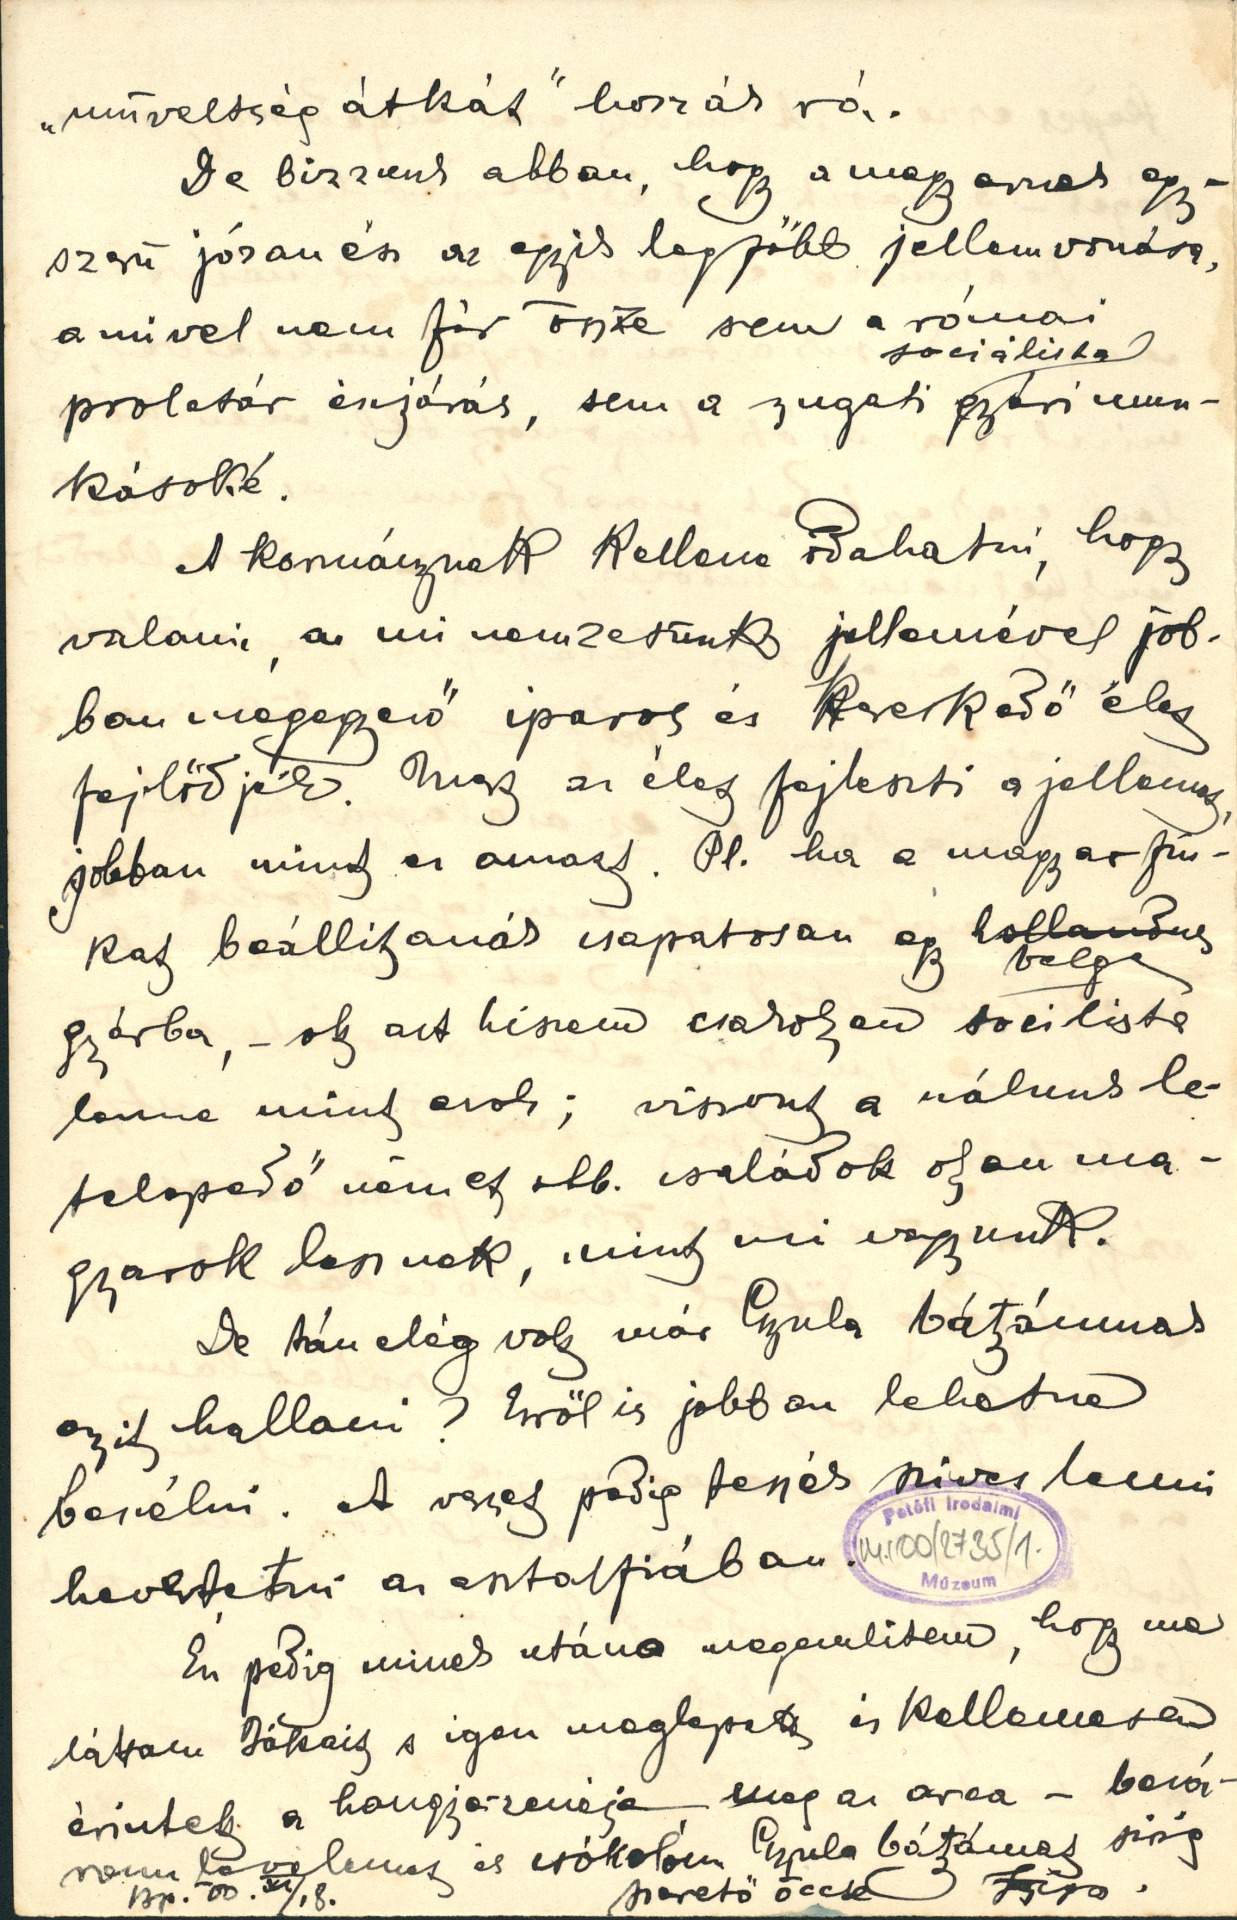 „műveltség átkát" hozzák rá.
De bizzunk abban, hogy a magyarnak egy-
szerű józan ész az egyik legfőbb jellemvonása,
amivel nem fér össze sem a római
socialista
proletár észjárás, sem a nyugati gyári mun-
kásoké.
A kormánynak kellene odahatni, hogy
valami, a mi nemzetünk jellemével job-
ban megegyező iparos és kereskedő élet
fejlődjék. Mert az élet fejleszti a jellemet,
jobban mint ez amazt. Pl. ha a magyar fiú-
kat beállitanák csapatosan egy hollandus
belga
gyárba, – ok azt hiszem csakolyan socilista
lenne mint azok; viszont a nálunk le-
telepedő német stb. családok olyan ma-
gyarok lesznek, mint mi vagyunk.
De tán elég volt már Gyula bátyámnak
ezit hallani? Erről is jobban lehetne
beszélni. A verset pedig tessék szives lenni
hevertetni az asztalfiában.
Petőfi Irodalmi
M.100/2735/1.
Múzeum
Én pedig minek utána megemlitem, hogy ma
láttam Jókait s igen meglepett és kellemesen
érintett a hangja zenéje meg az arca – bezá-
rom levelemet és csókolom Gyula bátyámat
Bp. 00. XII/18. szerető öccse